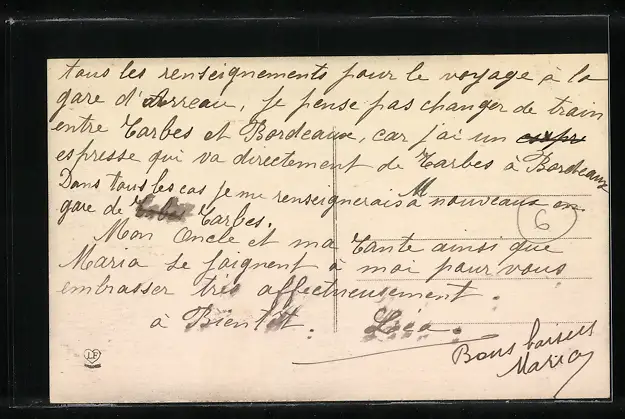 tous les renseignements pour le voyage à la
gare d'Arreau, je pense pas changer de train
entre Tarbes et Bordeaux, car j'ai un
espresse qui va directement de Tarbes à Bordeaux
Dans tous les cas je me renseignerais à nouveaux en
gare de Tarbes.
Mon Oncle et ma Tante ainsi que
Maria se joignent à moi pour vous
embrasser très affectueusement.
à Bientôt. Léa.
Bons baisers
Maria
6
LF